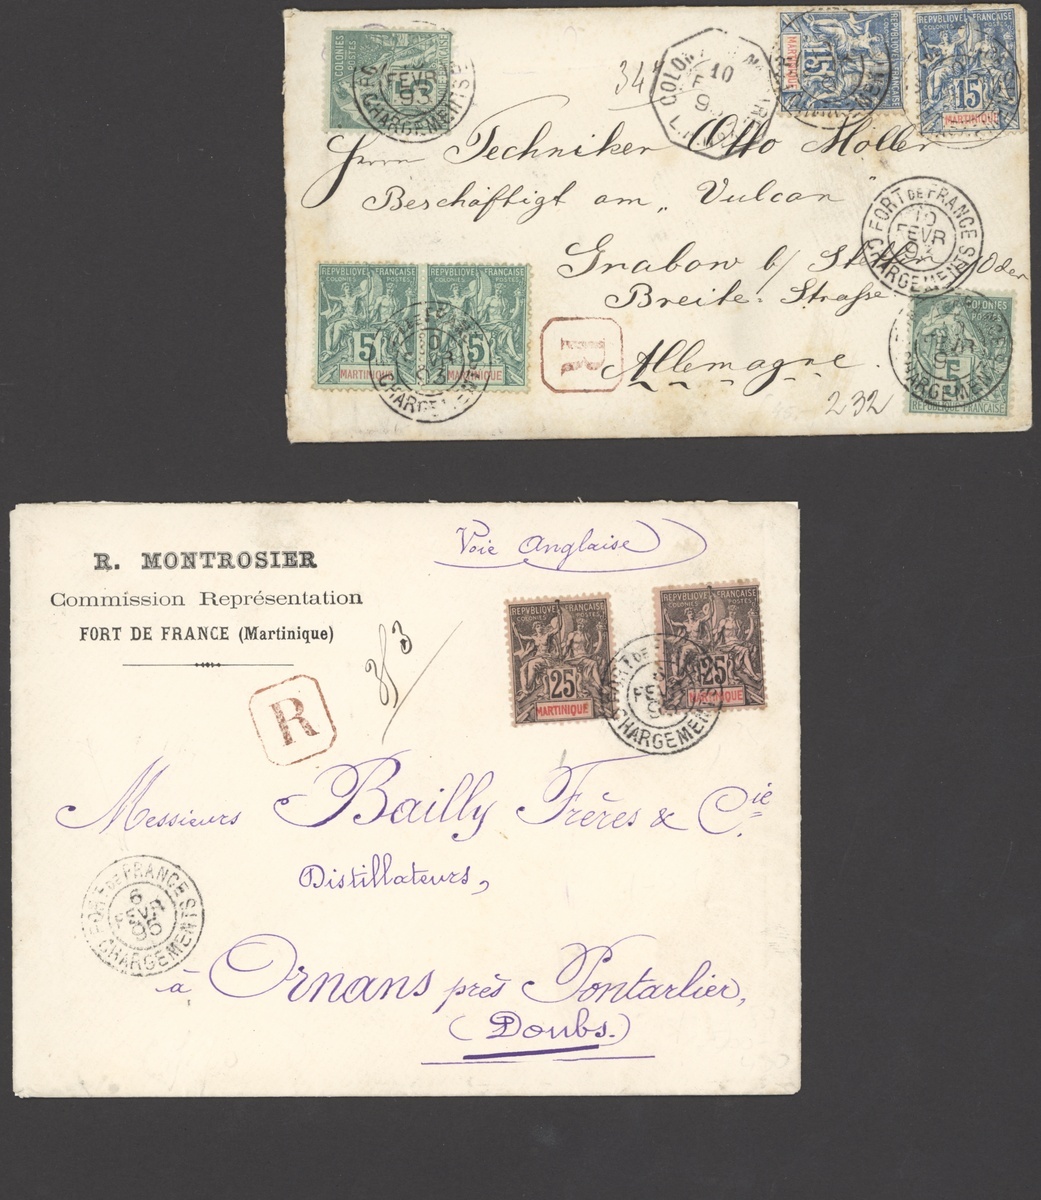 COLONIES
POSTES
FEVR
93
CHARGEMENTS
34
10
93
MARTINIQUE
15
REPVBLIQVE FRANÇAISE
COLONIES POSTES
15
MARTINIQUE
Herrn Techniker Otto Möller
Beschäftigt am „Vulcan"
FORT DE FRANCE
10
FEVR
93
CHARGEMENTS
Grabow b/ Stettin a/Oder
Breite-Strasse
Allemagne.
REPVBLIQVE FRANÇAISE
COLONIES POSTES
5
MARTINIQUE
REPVBLIQVE FRANÇAISE
COLONIES POSTES
5
MARTINIQUE
CHARGEMENTS
R
232
COLONIES
POSTES
5
CHARGEMENTS
REPUBLIQUE FRANÇAISE
R. MONTROSIER
Commission Représentation
FORT DE FRANCE (Martinique)
Voie Anglaise
R
REPVBLIQVE FRANÇAISE
COLONIES POSTES
25
MARTINIQUE
REPVBLIQVE FRANÇAISE
COLONIES POSTES
25
MARTINIQUE
FORT DE FRANCE
FEVR
CHARGEMENTS
Messieurs Bailly Frères & Cie.
Distillateurs,
FORT DE FRANCE
6
FEVR
95
CHARGEMENTS
à Ornans près Pontarlier,
(Doubs.)